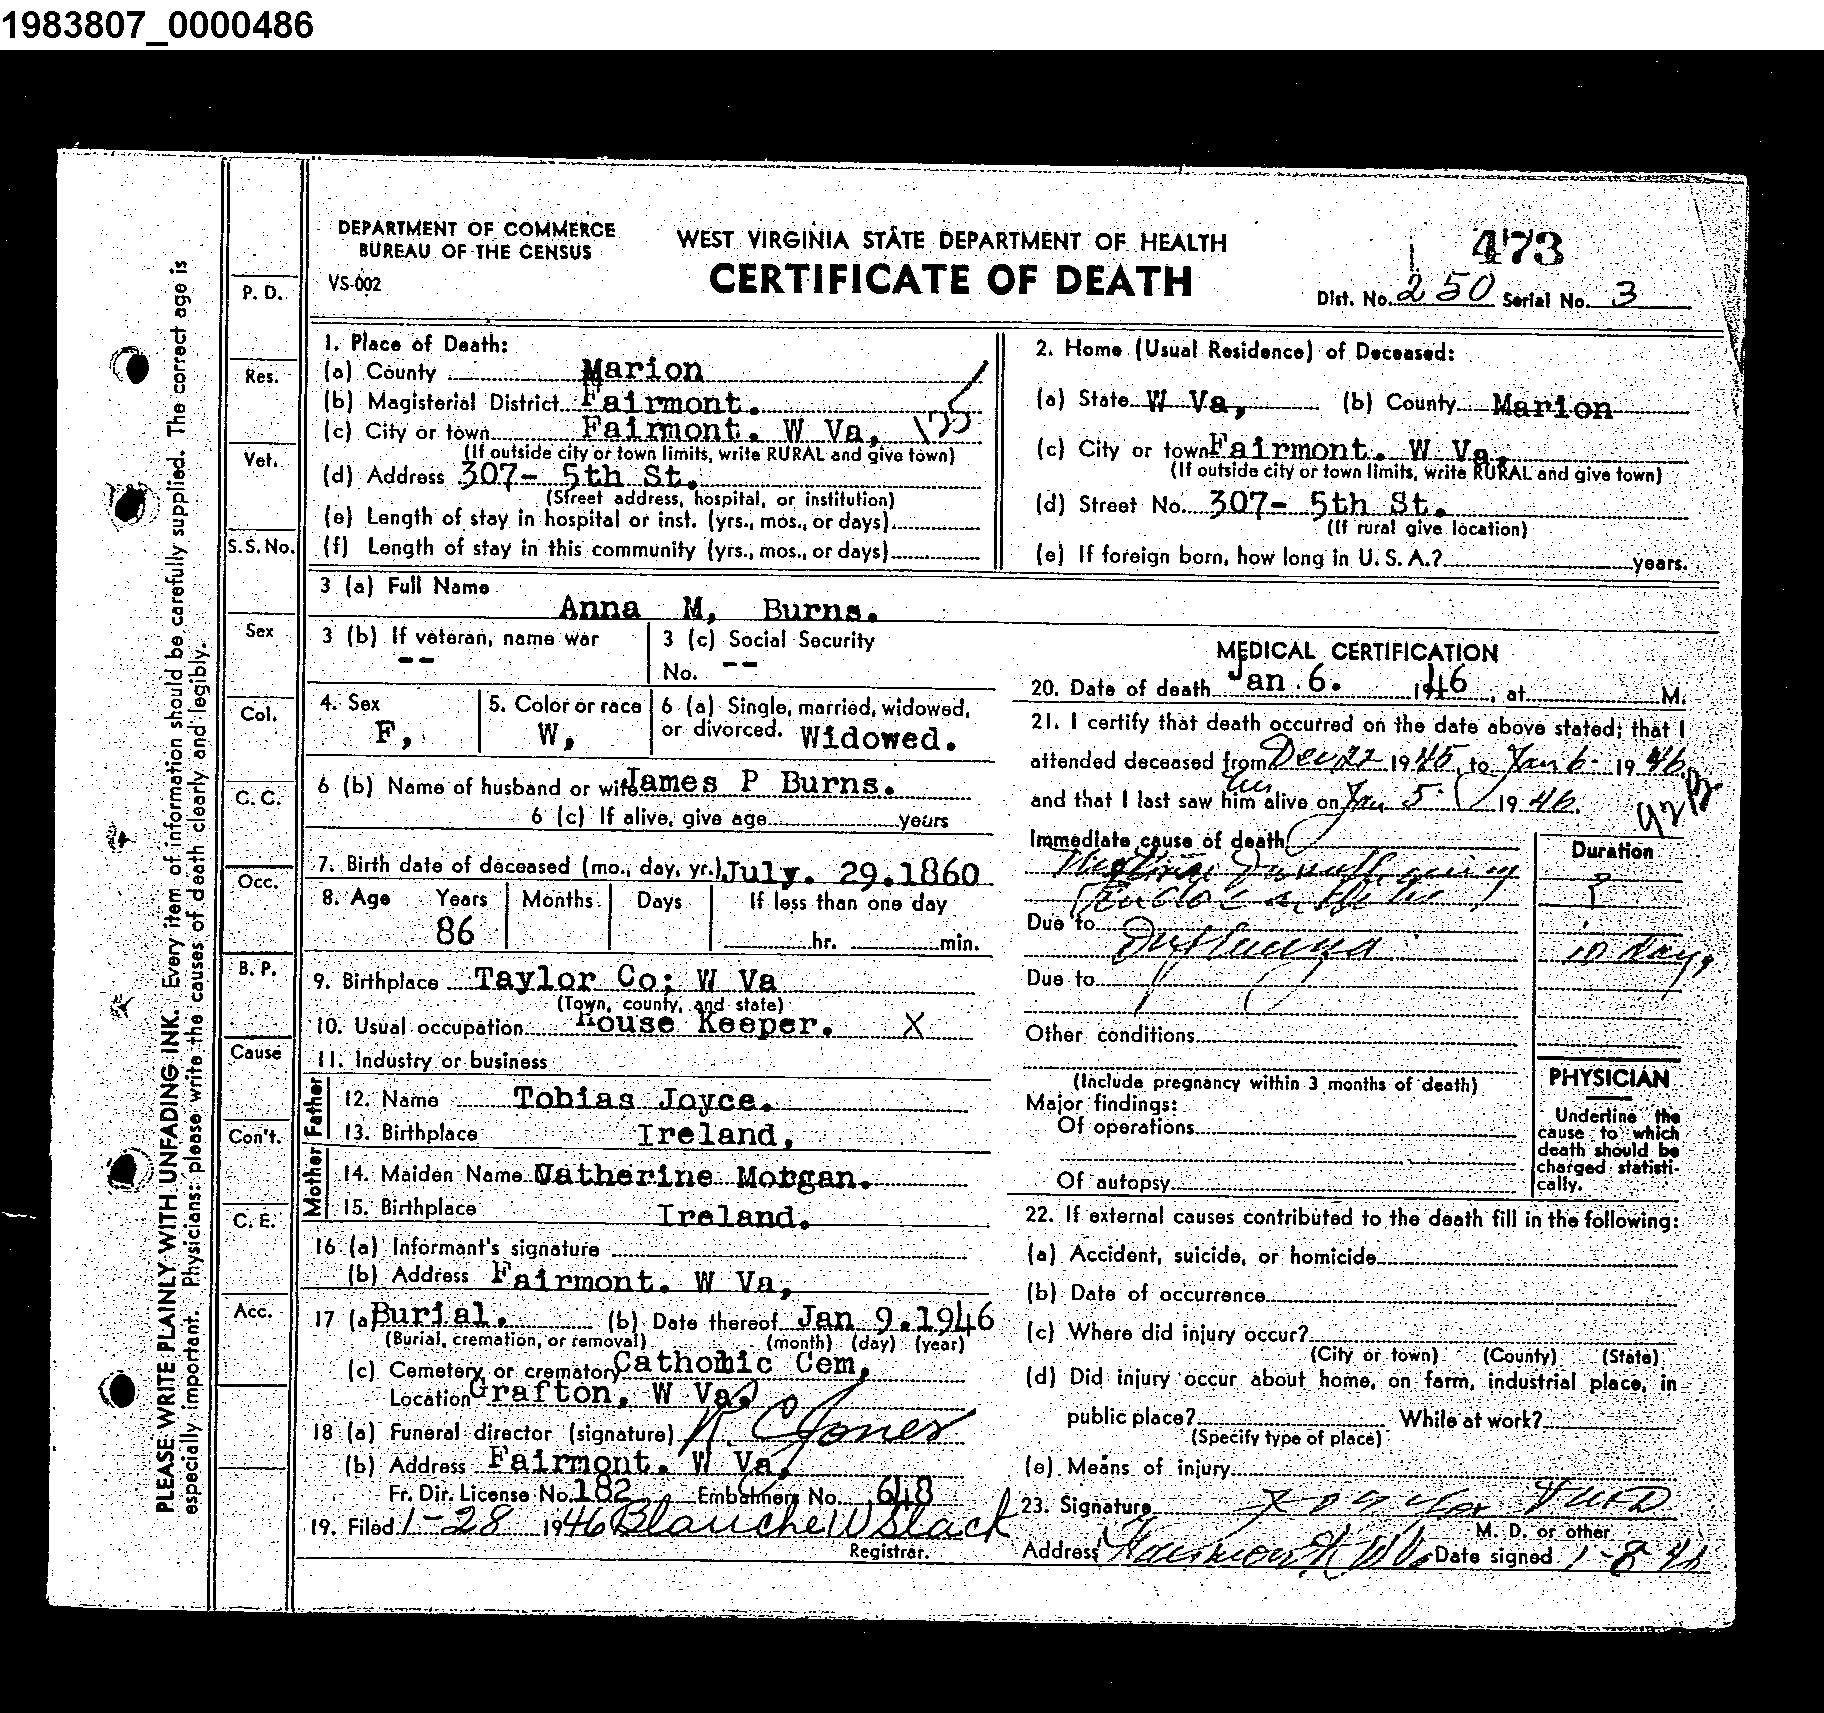 1983807_0000486
DEPARTMENT OF COMMERCE
BUREAU OF THE CENSUS
VS-002
WEST VIRGINIA STATE DEPARTMENT OF HEALTH
CERTIFICATE OF DEATH
473
Dist. No. 250 Serial No. 3
PLEASE WRITE PLAINLY WITH UNFADING INK. Every item of information should be carefully supplied. The correct age is
especially important. Physicians: please write the causes of death clearly and legibly.
P. D.
Res.
Vet.
S. S. No.
Sex
Col.
C. C.
Occ.
B. P.
Cause
Con't.
C. E.
Acc.
1. Place of Death:
(a) County Marion
(b) Magisterial District Fairmont.
(c) City or town Fairmont. W Va,
(If outside city or town limits, write RURAL and give town)
(d) Address 307- 5th St.
(Street address, hospital, or institution)
(e) Length of stay in hospital or inst. (yrs., mos., or days)
(f) Length of stay in this community (yrs., mos., or days)
2. Home (Usual Residence) of Deceased:
(a) State W Va, (b) County Marion
(c) City or town Fairmont. W Va,
(If outside city or town limits, write RURAL and give town)
(d) Street No. 307- 5th St.
(If rural give location)
(e) If foreign born, how long in U. S. A.? years.
3 (a) Full Name
Anna M, Burns.
3 (b) If veteran, name war
--
3 (c) Social Security
No. --
4. Sex
F,
5. Color or race
W,
6 (a) Single, married, widowed,
or divorced. Widowed.
6 (b) Name of husband or wife James P Burns.
6 (c) If alive, give age years
7. Birth date of deceased (mo., day, yr.) July. 29.1860
8. Age Years Months Days If less than one day
86 hr. min.
9. Birthplace Taylor Co; W Va
(Town, county, and state)
10. Usual occupation House Keeper. X
11. Industry or business
Father
12. Name Tobias Joyce.
13. Birthplace Ireland,
Mother
14. Maiden Name Catherine Morgan.
15. Birthplace Ireland.
16 (a) Informant's signature
(b) Address Fairmont. W Va,
17 (a) Burial. (b) Date thereof Jan 9.1946
(Burial, cremation, or removal) (month) (day) (year)
(c) Cemetery or crematory Cathomic Cem,
Location Grafton, W Va,
18 (a) Funeral director (signature) R. C Jones
(b) Address Fairmont. W Va,
Fr. Dir. License No. 182 Embalmers No. 648
19. Filed 1-28 1946 Blanche W Slack
Registrar.
MEDICAL CERTIFICATION
20. Date of death Jan 6. 1946, at M.
21. I certify that death occurred on the date above stated; that I
attended deceased from Dec 22 1945, to Jan 6 1946,
her
and that I last saw him alive on Jan 5 1946.
Immediate cause of death
Duration
?
Due to
Influenza 10 days
Due to
Other conditions
(Include pregnancy within 3 months of death)
Major findings:
Of operations
Of autopsy
PHYSICIAN
Underline the
cause to which
death should be
charged statisti-
cally.
22. If external causes contributed to the death fill in the following:
(a) Accident, suicide, or homicide
(b) Date of occurrence
(c) Where did injury occur?
(City or town) (County) (State)
(d) Did injury occur about home, on farm, industrial place, in
public place? While at work?
(Specify type of place)
(e) Means of injury
23. Signature
M. D. or other
Address Fairmont W Va Date signed 1-8 46